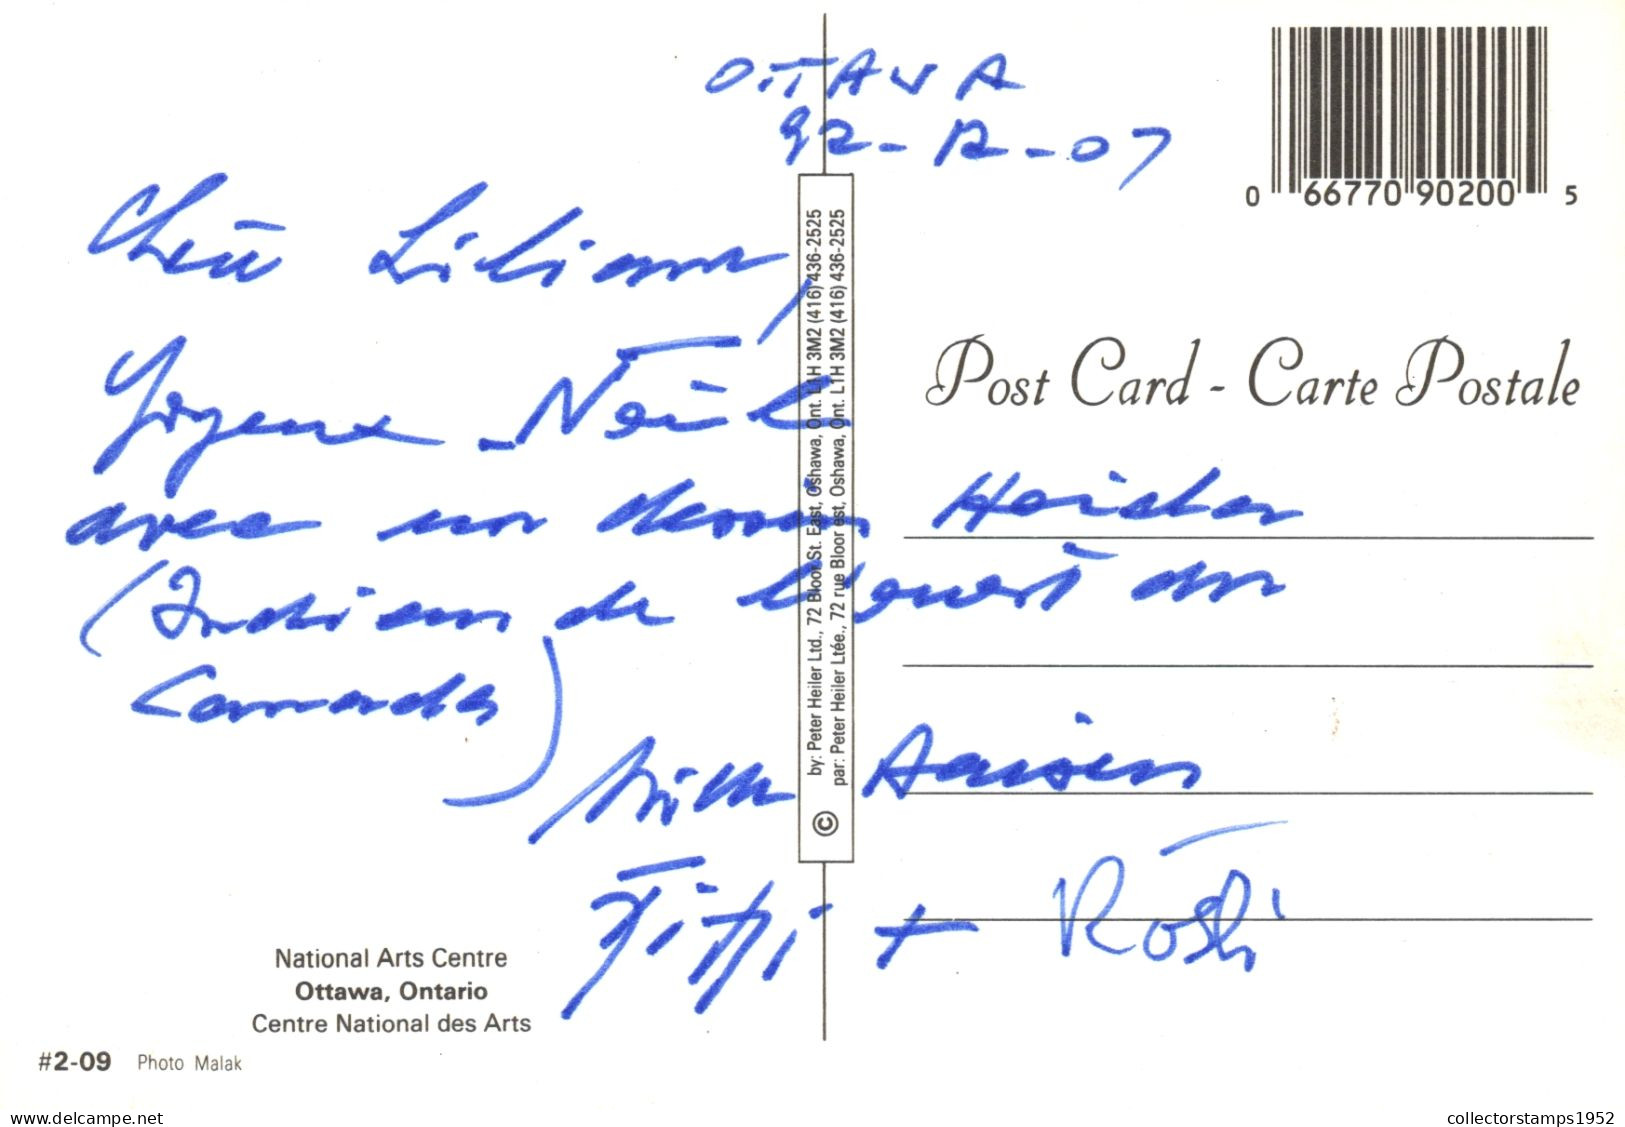 OTTAWA
92-12-07
0 66770 90200 5
Chère Liliane,
Joyeux Noël
avec un dessin Haida
(Indiens de l'ouest du
Canada)
Mille baisers
Fippi + Röslí
Post Card - Carte Postale
by: Peter Heiler Ltd., 72 Bloor St. East, Oshawa, Ont. L1H 3M2 (416) 436-2525
par: Peter Heiler Ltée., 72 rue Bloor est, Oshawa, Ont. L1H 3M2 (416) 436-2525
©
National Arts Centre
Ottawa, Ontario
Centre National des Arts
#2-09 Photo Malak
delcampe.net
collectorstamps1952